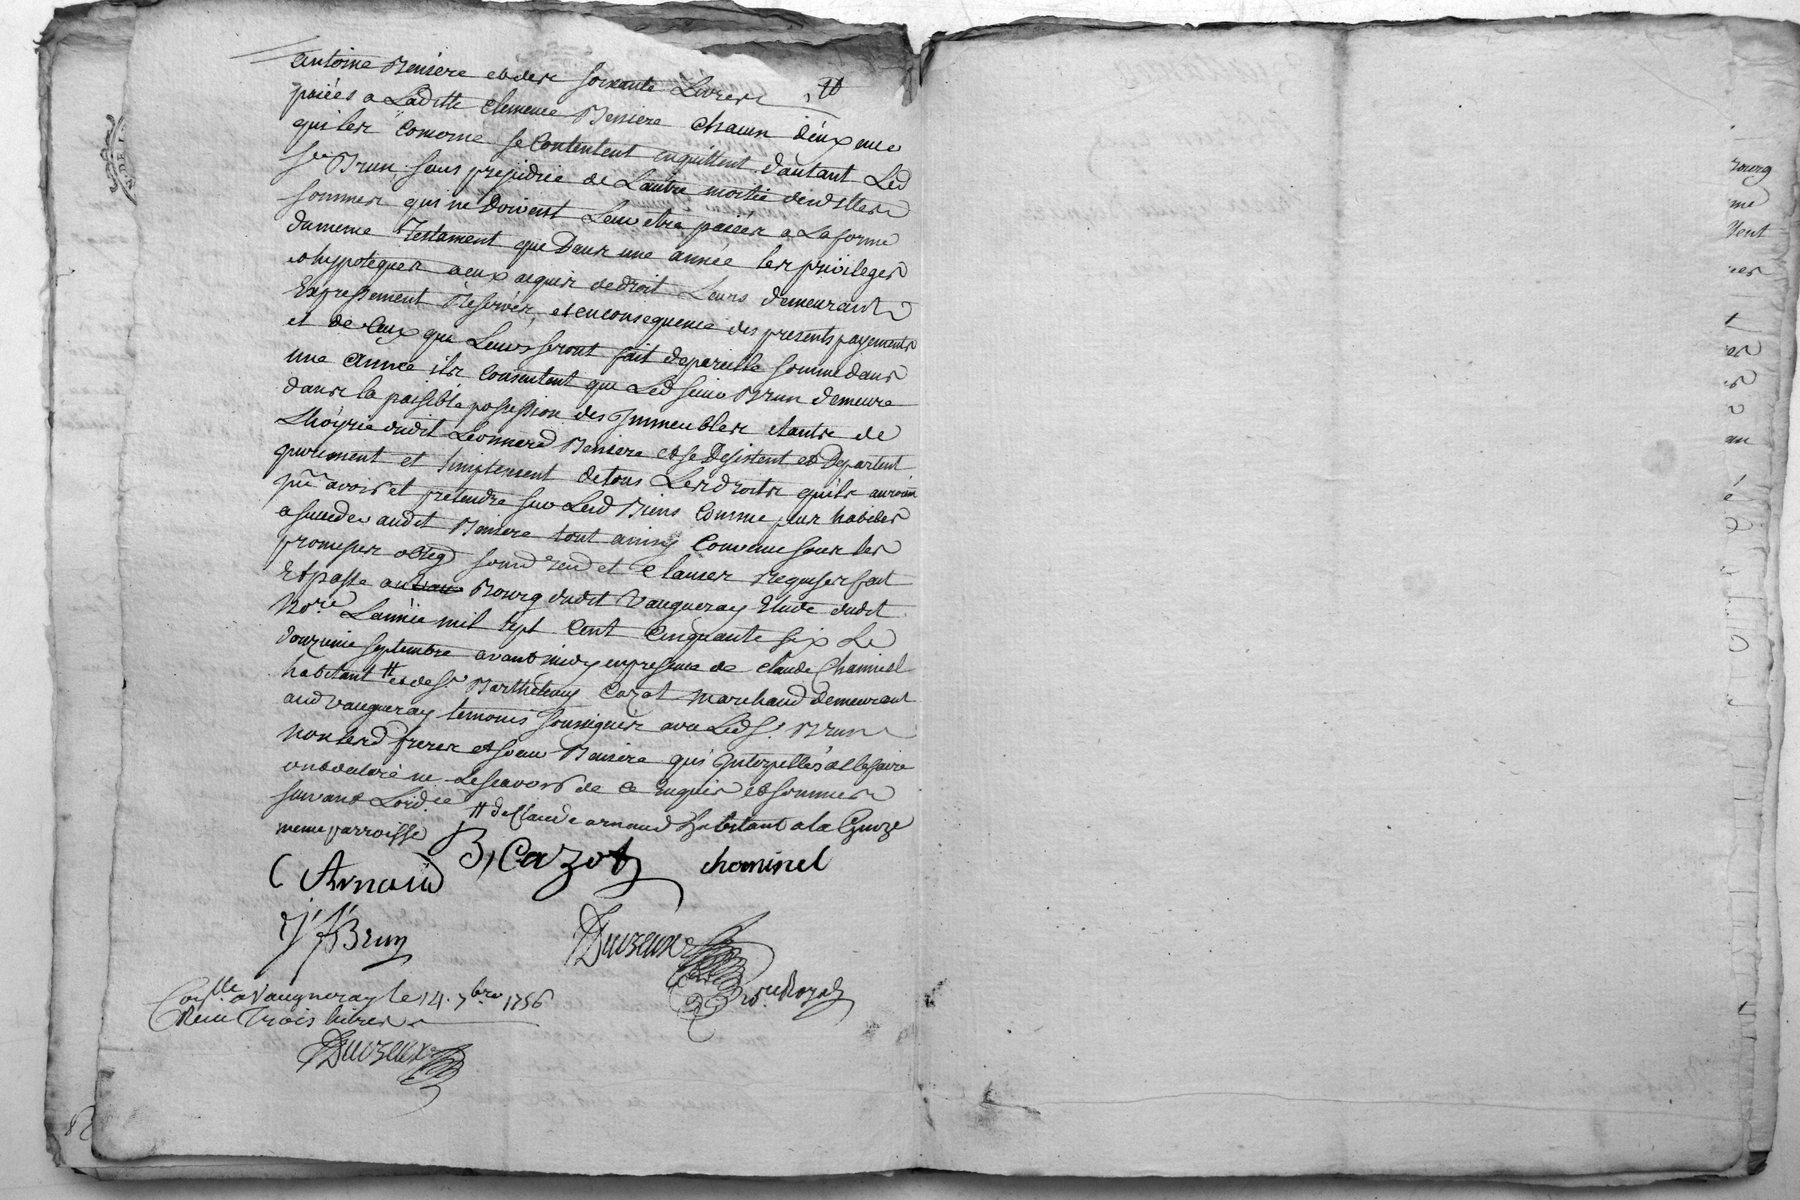 antoine Benierе et des soixante Livres
païéés a Laditte Clemence Beniere Chacun deux
qui les Comerne se Contentent enquittent d'autant Led
Sr Brun, sans prejudice de Lautre moitié desdittes
sommes qui ne doivent Leur etre païées a La forme
dumeme Testament que Dans une année les privileges
ethypoteques aeux acquis dedroit Leurs demeurant
Expressement Reservés, etenconsequence des presents payements
et de Ceux que Leurs seront fait depareille somme dans
une Année ils Consentent que Led sieur Brun demeure
dans la paisible possession des Immeubles et autre de
Lhoyrie dudit Leonnard Beniere et se Desistent et Departent
purement et simplement detous Les droits quils auroient
pû avoir et pretendre sur Lesd Biens Comme plus habiles
a succeder audit Beniere tout ainsy Convenu sous les
promesses oblig soumd rend et Clauses Requises fait
Et passé au Bourg dudit Vaugneray Etude dudit
Nore Lannée mil sept Cent Cinquante six Le
douzieme septembre avant midy en presence de Claude Chaminel
habitant # et de Sr Barthelemy Cazot marchand demeurant
aud Vaugneray temoins soussignés avec Led Sr Brun
Non lesd freres et soeur Beniere qui Interpellés de le faire
ont declaré ne Le scavoir de ce enquis et sommés
suivant Lord.ce # de Claude arnaud habitant a la
meme parroisse
C Arnaud B, Cazot chominel
J f Brun Duvzeux
Conllé a Vaugneray le 14. 7bre 1756 Nre Royal
Reçu Trois livres
Duvzeux
Bourg
me
Vent
ces
au